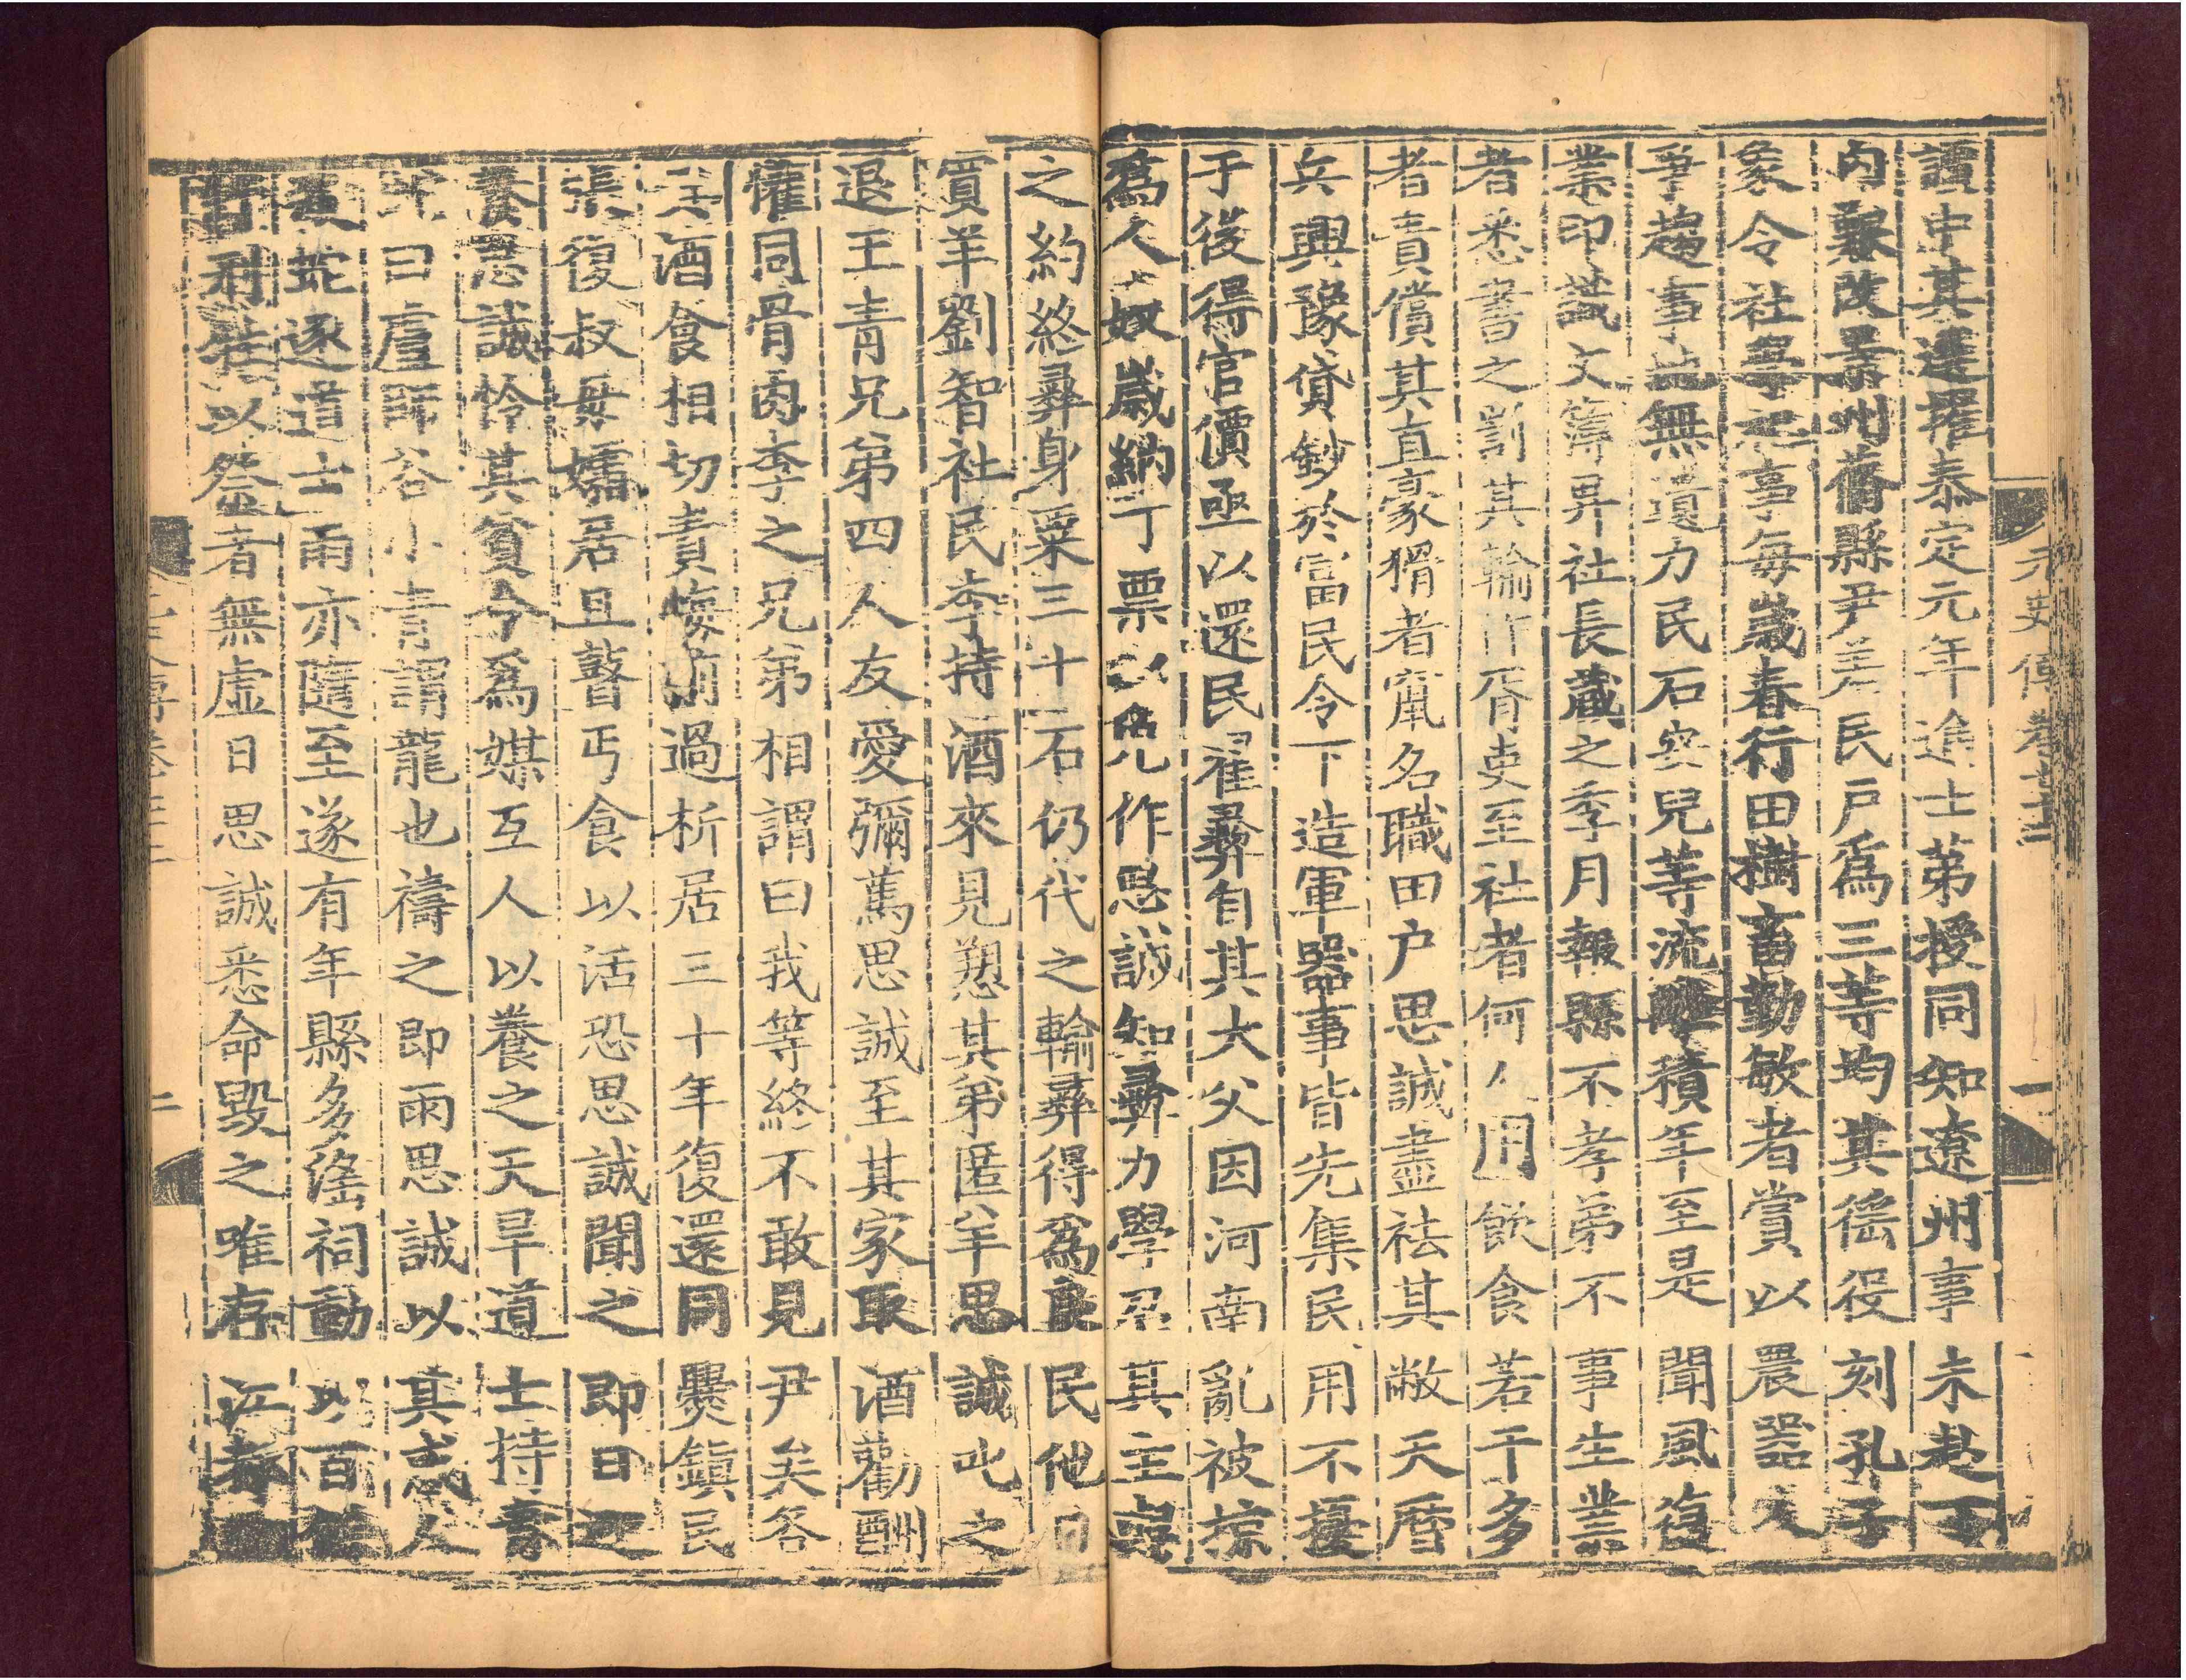 讀中其選擢泰定元年進士第授同知遼州事未赴丁
內艱改景州蓨縣尹差民戶爲三等均其徭役刻孔子
象令社學祀事每歲春行田樹畜勤敏者賞以農器人
爭趨事無遺力民石安兒等流離積年至是聞風復
業印識文簿畀社長藏之季月報縣不孝弟不事生業
者悉書之罰其輸作胥吏至社者何人用飲食若干多
者責償其直豪猾者竄名職田户思誠盡祛其敝天曆
兵興豫貸鈔於富民令下造軍器事皆先集民用不擾
于後得官價亟以還民翟彝自其大父因河南亂被掠
爲人奴歲納丁粟以免作思誠知彝力學召其主與
之約終彝身粟三十石仍代之輸彝得爲良民他日
買羊劉智社民李持酒來見愬其弟匿羊思誠叱之
退王青兄弟四人友愛彌篤思誠至其家取酒勸酬
懽同骨肉李之兄弟相謂曰我等終不敢見尹矣各
具酒食相切責悔前過析居三十年復還同爨鎮民
張復叔母孀居且瞽丐食以活恐思誠聞之即日迎
養思誠憐其貧令爲媒互人以養之天旱道士持青
蛇曰盧師谷小青謂龍也禱之即雨思誠以其惑人
殺蛇逐道士雨亦隨至遂有年縣多淫祠動以百餘
計刑牲以祭者無虛日思誠悉命毀之唯存江都
元史傳卷
一
二